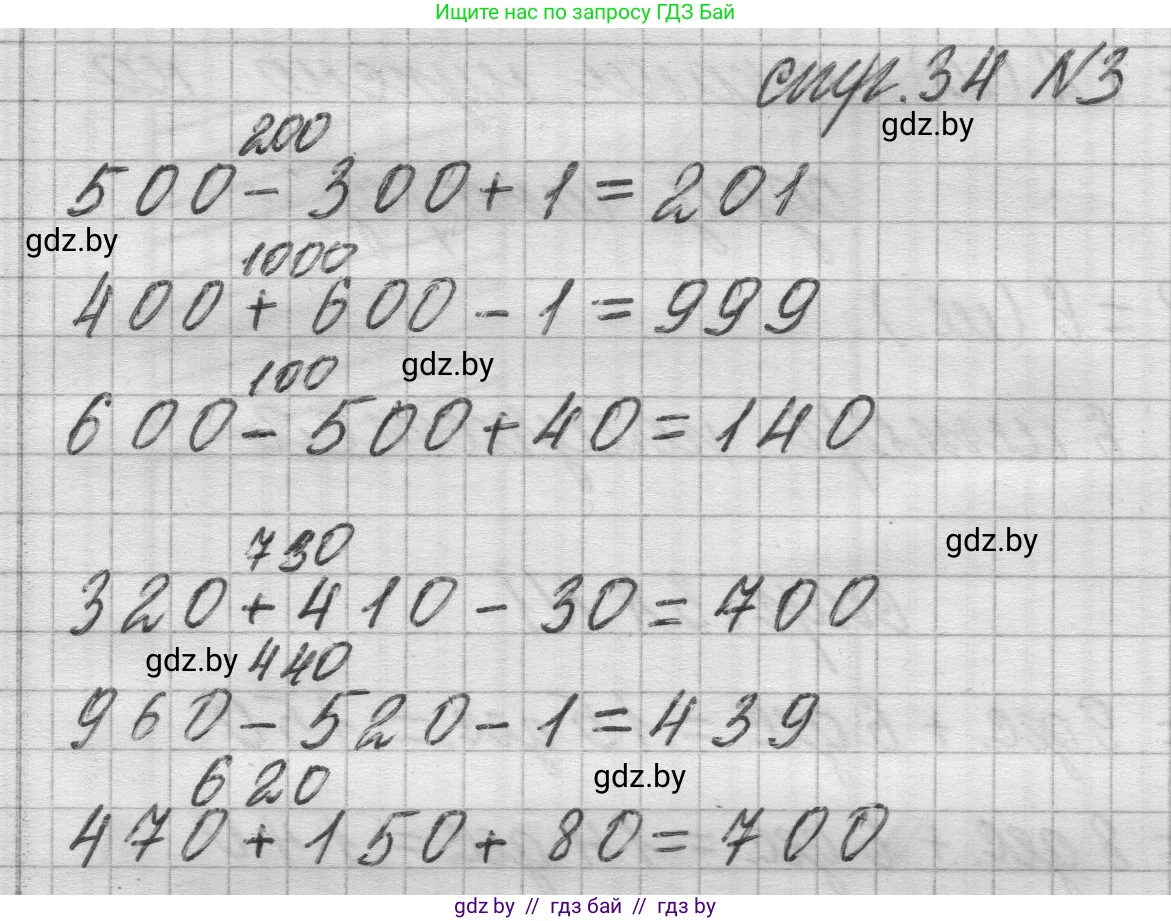 Ищите нас по запросу ГДЗ Бай
стр. 34 №3
gdz.by
200
500 - 300 + 1 = 201
gdz.by
1000
400 + 600 - 1 = 999
gdz.by
100
600 - 500 + 40 = 140
gdz.by
730
320 + 410 - 30 = 700
gdz.by
440
960 - 520 - 1 = 439
gdz.by
620
470 + 150 + 80 = 700
gdz by // гдз бай // гдз by